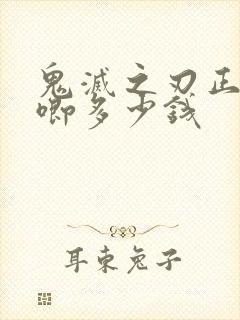 鬼滅之刃正
唧多少錢
耳東兔子